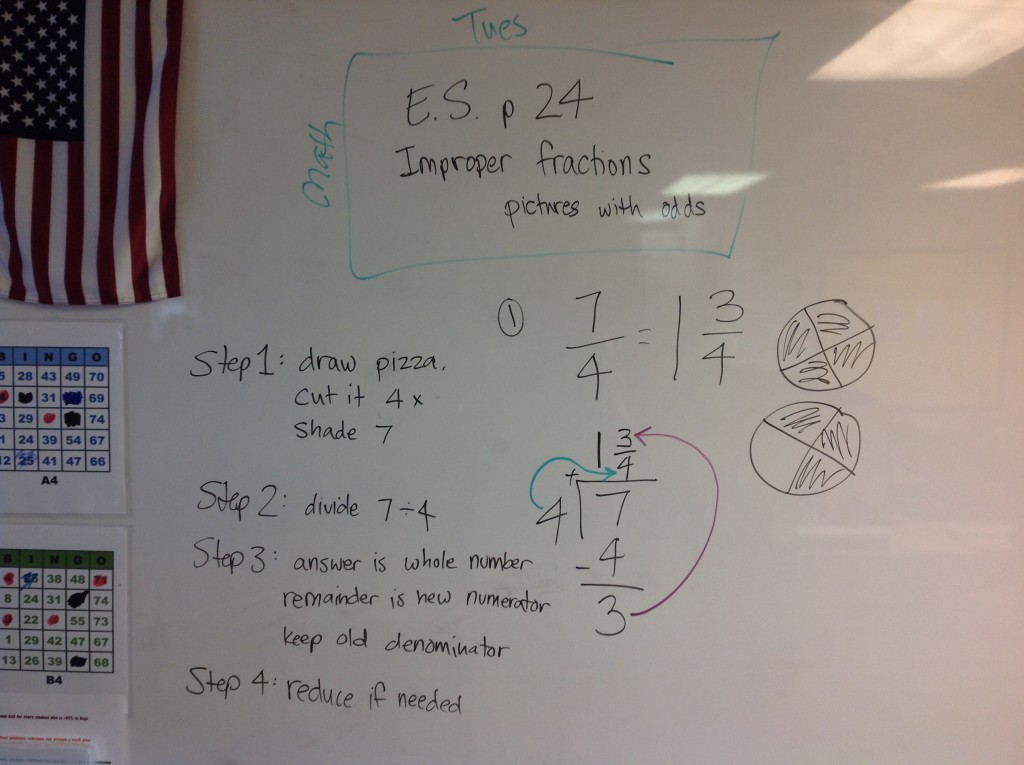 Tues
Math
E.S. p 24
Improper fractions
pictures with odds
① 7/4 = 1 3/4
Step 1: draw pizza.
cut it 4 x
shade 7
Step 2: divide 7÷4
Step 3: answer is whole number
remainder is new numerator
keep old denominator
Step 4: reduce if needed
1 3/4
+
4 7
- 4
3
B I N G O
28 43 49 70
31 69
3 29 74
1 24 39 54 67
12 25 41 47 66
A4
B I N G O
38 48 71
8 24 31 74
22 55 73
1 29 42 47 67
13 26 39 68
B4